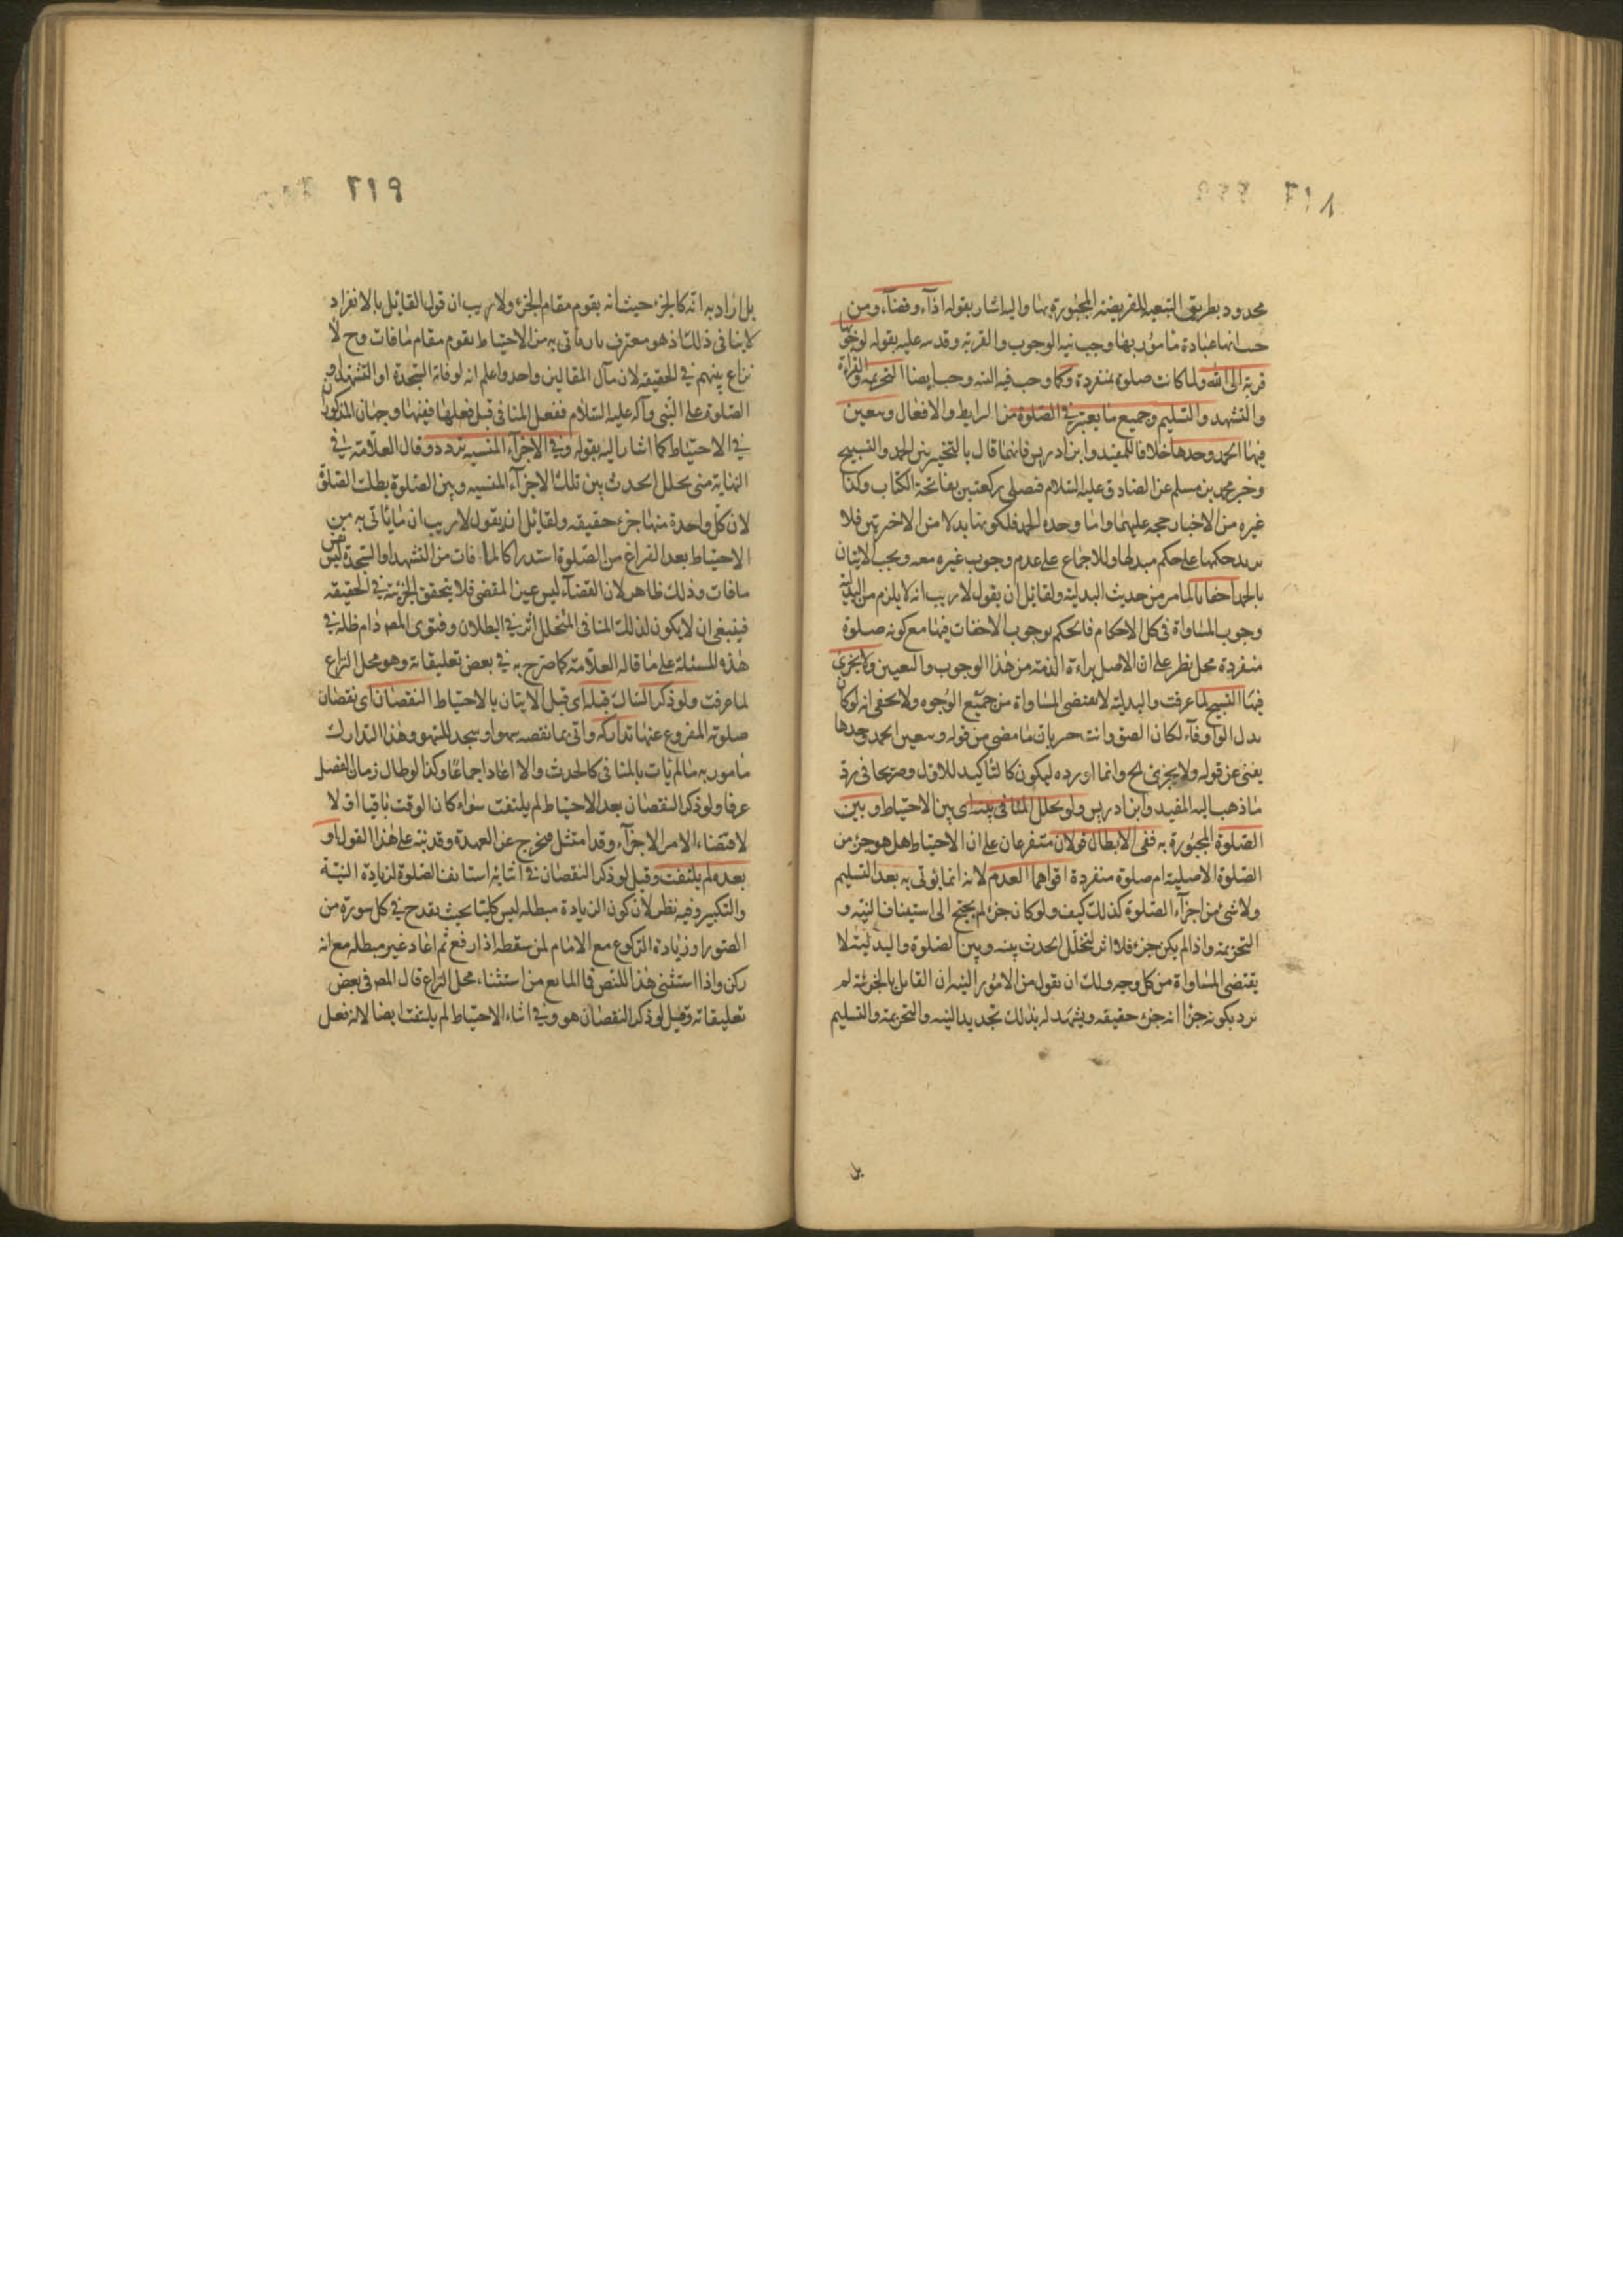 محدود بطريق التبعية للفريضة المجبورة بها واليه اشار بقوله اداء وقضاء ومن
حيث انها عبادة مامور بها وجب نية الوجوب والقربة وقد نبه عليه بقوله لوجوبها
قربة الى الله ولما كانت صلوة منفردة وكما وجب فيه النية وجب ايضا التحريمة والقراءة
والتشهد والتسليم وجميع ما يعتبر في الصلوة من الشرايط والافعال وتتعين
فيها الحمد وحدها خلافا للمفيد وابن ادريس فانهما قال بالتخيير بين الحمد والتسبيح
وخبر محمد بن مسلم عن الصادق عليه السلام فصلى ركعتين بفاتحة الكتاب وكذا
غيره من الاخبار حجة عليهما واما وحدة الحمد فلكونها بدلا من الاخيرتين فلا
يزيد حكمها على حكم مبدلها وللاجماع على عدم وجوب غيره معه ويجب الاتيان
بالحمد اخفاتا لما مر من حديث البدلية ولقائل ان يقول لا ريب انه لا يلزم من البدلية
وجوب المساواة في كل الاحكام فالحكم بوجوب الاخفات فيها مع كونه صلوة
منفردة محل نظر على ان الاصل براءة الذمة من هذا الوجوب والتعيين ولا يجزي
فيها التسبيح لما عرفت والبدلية لا تقتضي المساواة من جميع الوجوه ولا يخفى انه لو كان
بدل الواو فاء لكان الصق وانت خبير بان ما مضى من قوله وتتعين الحمد وحدها
يغني عن قوله ولا يجزي الخ وانما اورده ليكون كالتاكيد للاول وصريحا في رد
ما ذهب اليه المفيد وابن ادريس ولو تخلل المنافي بينه اي بين الاحتياط وبين
الصلوة المجبورة به ففي الابطال قولان متفرعان على ان الاحتياط هل هو جزء من
الصلوة الاصلية ام صلوة منفردة اقواهما العدم لانه انما يؤتى به بعد التسليم
ولا شئ من اجزاء الصلوة كذلك كيف ولو كان جزء لم يحتج الى استيناف النية و
التحريمة واذا لم يكن جزء فلا اثر لتخلل الحدث بينه وبين الصلوة والبدلية لا
يقتضي المساواة من كل وجه ولك ان تقول من الامور البينة ان القايل بالجزئية لم
يرد بكونه جزا انه جزء حقيقة ويشهد له بذلك تجديد النية والتحريمة والتسليم
بل
بل اراد به انه كالجزء حيث انه يقوم مقام الجزء ولا ريب ان قول القائل بالانفراد
لا ينافي ذلك اذ هو معترف بان ما تى به من الاحتياط يقوم مقام ما فات وح لا
نزاع بينهم في الحقيقة لان مآل المقالين واحد واعلم انه لو فاته السجدة او التشهد او
الصلوة على النبي وآله عليه السلام ففعل المنافي قبل فعلها ففيها وجهان المذكوران
في الاحتياط كما اشار اليه بقوله وفي الاجزاء المنسية تردد وقال العلامة في
النهاية متى تخلل الحدث بين تلك الاجزاء المنسية وبين الصلوة بطلت الصلوة
لان كل واحدة منها جزء حقيقة ولقائل ان يقول لا ريب ان ما ياتى به من
الاحتياط بعد الفراغ من الصلوة استدراكا لما فات من التشهد او السجدة ليس عين
ما فات وذلك ظاهر لان القضاء ليس عين المقضي فلا يتحقق الجزئية في الحقيقة
فينبغي ان لا يكون لذلك المنافي المتخلل اثر في البطلان وفتوى المصر دام ظله في
هذه المسئلة على ما قاله العلامة كما صرح به في بعض تعليقاته وهو محل النزاع
لما عرفت ولو ذكر الشاك قبله اي قبل الاتيان بالاحتياط النقصان اي نقصان
صلوته المفروغ عنها تداركه واتى بما نقصه سهوا وسجد للسهو وهذا التدارك
مامور به ما لم يات بالمنافي كالحدث والا اعاد اجماعا وكذا لو طال زمان الفصل
عرفا ولو ذكر النقصان بعد الاحتياط لم يلتفت سواء كان الوقت باقيا اولا
لاقتضاء الامر الاجزاء وقد امتثل فخرج عن العهدة وقد نبه على هذا القول او
بعده لم يلتفت وقيل لو ذكر النقصان في اثنائه استانف الصلوة لزيادة النية
والتكبير وفيه نظر لان كون الزيادة مبطلة ليس كليتا بحيث يقدح في كل سورة من
الصور او زيادة الركوع مع الامام لمن سقطه اذا رفع ثم اعاد غير مبطله مع انه
ركن واذا استثنى هذا للنص فالمانع من استثناء محل النزاع قال المصر في بعض
تعليقاته وقيل لو ذكر النقصان هو وفي اثناء الاحتياط لم يلتفت ايضا لانه فعل